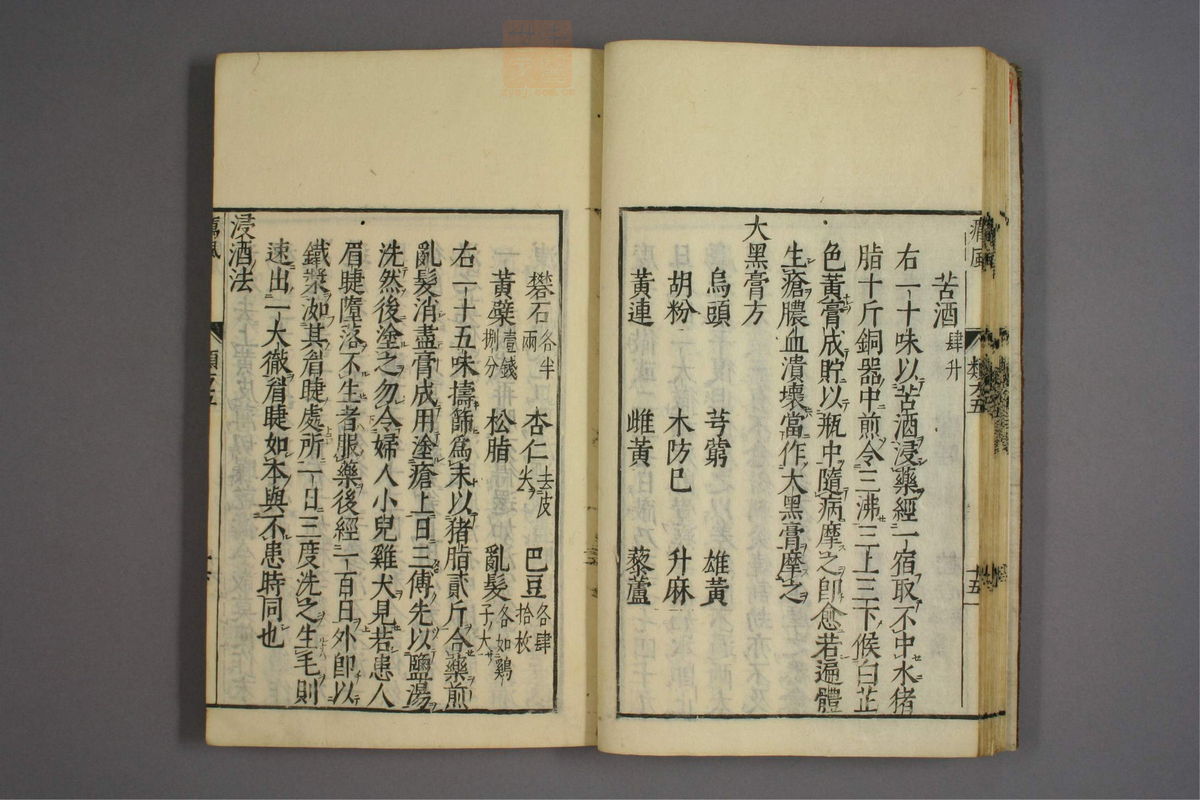 苦酒肆升
右一十味以苦酒浸藥經一宿取不中水猪
脂十斤銅器中煎令三沸三上三下候白芷
色黃膏成貯以瓶中隨病摩之卽愈若遍體
生瘡膿血潰壞當作大黑膏摩之
大黑膏方
烏頭 芎藭 雄黃
胡粉 木防巳 升麻
黃連 雌黃 藜蘆
礬石各半兩 杏仁去皮尖 巴豆各肆拾枚
黃蘗壹錢捌分 松脂 亂髮各如鷄子大
右一十五味擣篩爲末以猪脂貳斤合藥煎
亂髮消盡膏成用塗瘡上日三傅先以鹽湯
洗然後塗之勿令婦人小兒雞犬見若患人
眉睫墮落不生者服藥後經一百日外卽以
鐵漿洳其眉睫處所一日三度洗之生毛則
速出一大徹眉睫如本與不患時同也
浸酒法